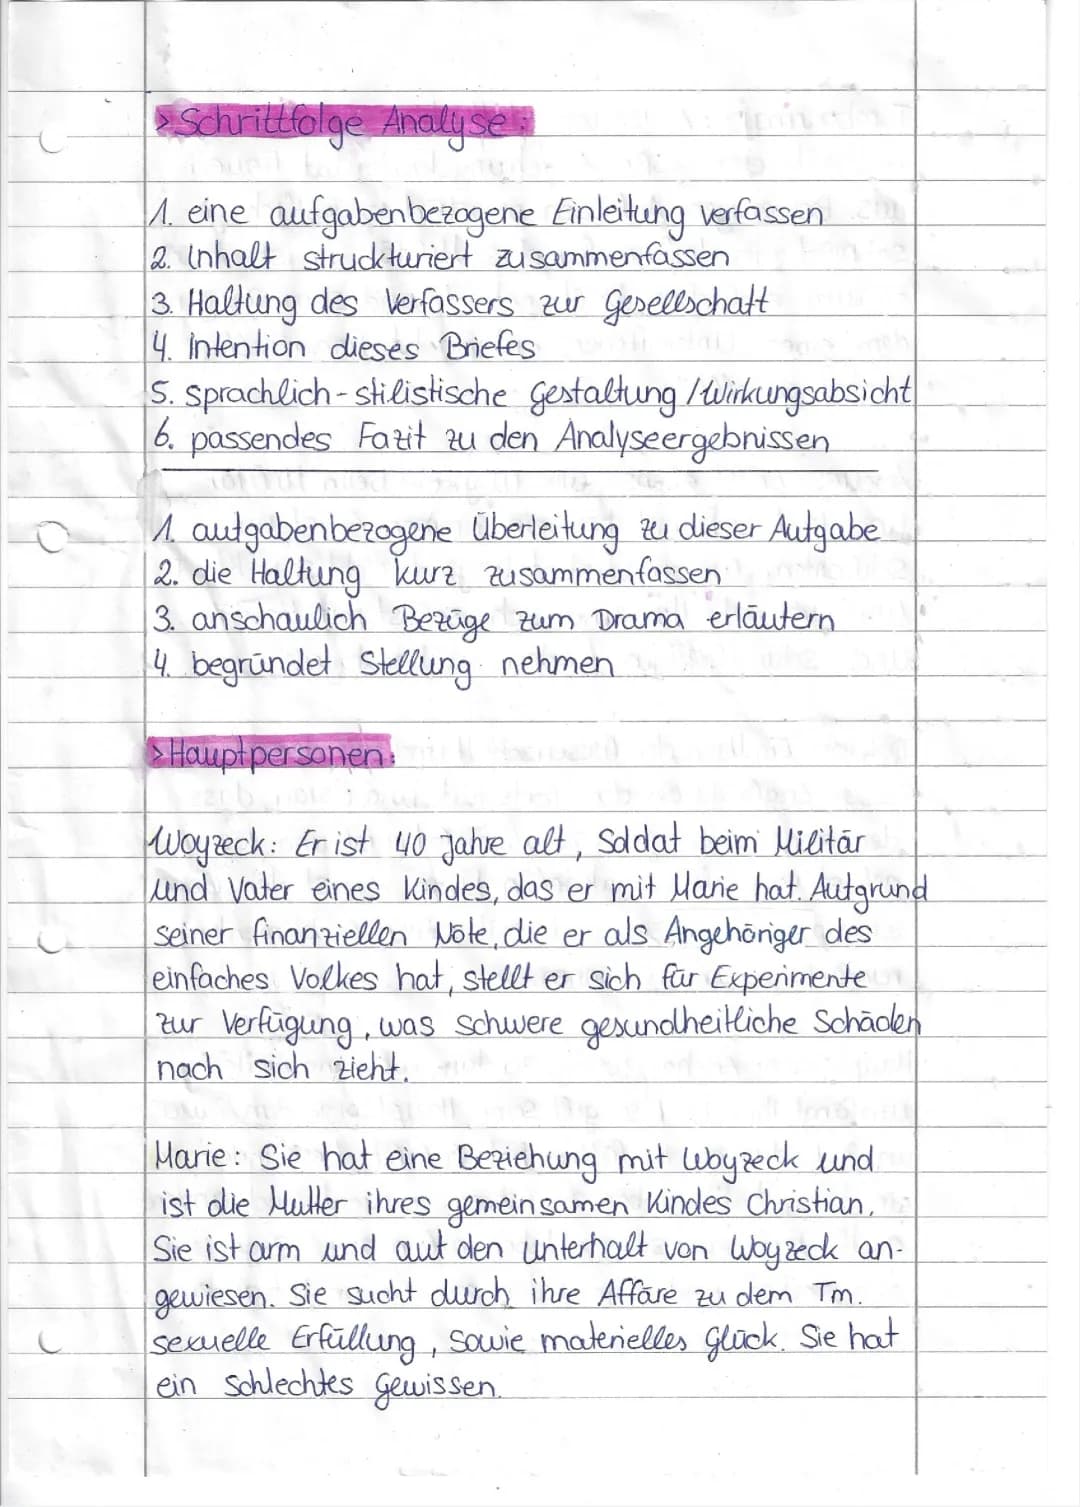 > Schrittfolge Analyse:
1. eine aufgabenbezogene Einleitung verfassen
2. Inhalt struckturiert zusammenfassen
3. Haltung des Verfassers zur Gesellschaft
4. Intention dieses Briefes
5. sprachlich-stilistische Gestaltung / Wirkungsabsicht
6. passendes Fazit zu den Analyseergebnissen
1. aufgabenbezogene Überleitung zu dieser Aufgabe
2. die Haltung kurz zusammenfassen
3. anschaulich Bezüge zum Drama erläutern
4. begründet Stellung nehmen
> Hauptpersonen:
Woyzeck: Er ist 40 Jahre alt, Soldat beim Militär
und Vater eines Kindes, das er mit Marie hat. Aufgrund
seiner finanziellen Nöte, die er als Angehöriger des
einfaches Volkes hat, stellt er sich für Experimente
zur Verfügung, was schwere gesundheitliche Schäden
nach sich zieht.
Marie: Sie hat eine Beziehung mit Woyzeck und
ist die Mutter ihres gemeinsamen Kindes Christian.
Sie ist arm und auf den Unterhalt von Woyzeck an-
gewiesen. Sie sucht durch ihre Affäre zu dem Tm.
sexuelle Erfüllung, sowie materielles Glück. Sie hat
ein schlechtes Gewissen.